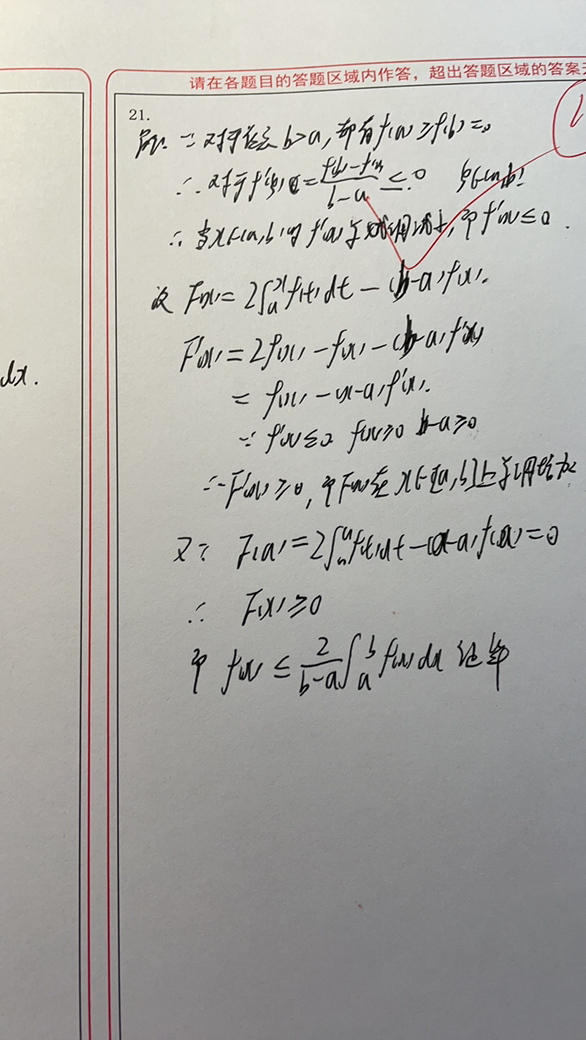 请在各题目的答题区域内作答，超出答题区域的答案无
21.
∵ 对于任意 b>a, 都有 f(a) ≥ f(b) = 0
∴ 对于 f'(ξ) = \frac{f(b)-f(a)}{b-a} ≤ 0 ξ∈(a,b)
∴ 当x∈(a,b)时 f'(x) , 即 f'(x) ≤ 0.
设 F(x) = 2∫_a^x f(t) dt - (b-a) f(x).
F'(x) = 2f(x) - f(x) - (b-a) f'(x)
dx.
= f(x) - (x-a) f'(x).
∵ f'(x) ≤ 0 f(x) ≥ 0 b-a ≥ 0
∴ F'(x) ≥ 0, 即 F(x) 在 x∈[a,b] 上单调增加
又∵ F(a) = 2∫_a^a f(t) dt - (a-a) f(a) = 0
∴ F(x) ≥ 0
即 f(x) ≤ \frac{2}{b-a} ∫_a^b f(x) dx 证毕